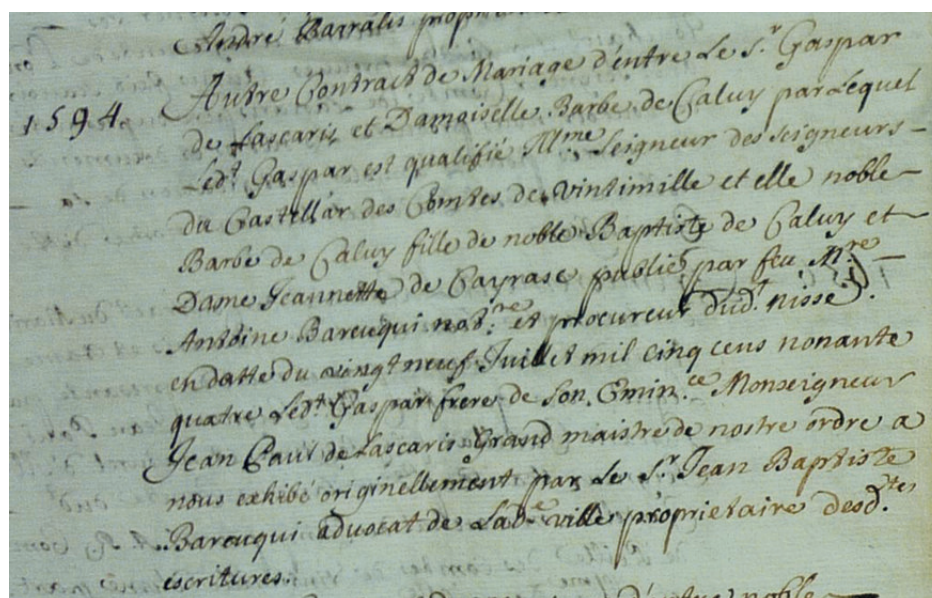 André Barralis
1594. Autre Contract de Mariage d'entre Le S.r Gaspar
de Lascaris et Damoiselle Barbe de Caluy par Lequel
Led.t Gaspar est qualifié Ill.me Seigneur des seigneurs
du Castellar des Comtes de Vintimille et elle noble
Barbe de Caluy fille de noble Baptiste de Caluy et
Dame Jeannette de Cayrase publié par feu M.re
Antoine Barcuqui not.re et procureur dud.t nisse
en datte du vingt neuf Juillet mil cinq cens nonante
quatre Led.t Gaspar frere de Son Emin.ce Monseigneur
Jean Paul de Lascaris Grand maistre de nostre ordre a
nous exhibé originellement par Le S.r Jean Baptiste
Barcuqui advocat de Lad.e ville propriétaire desd.tes
escritures.
noble